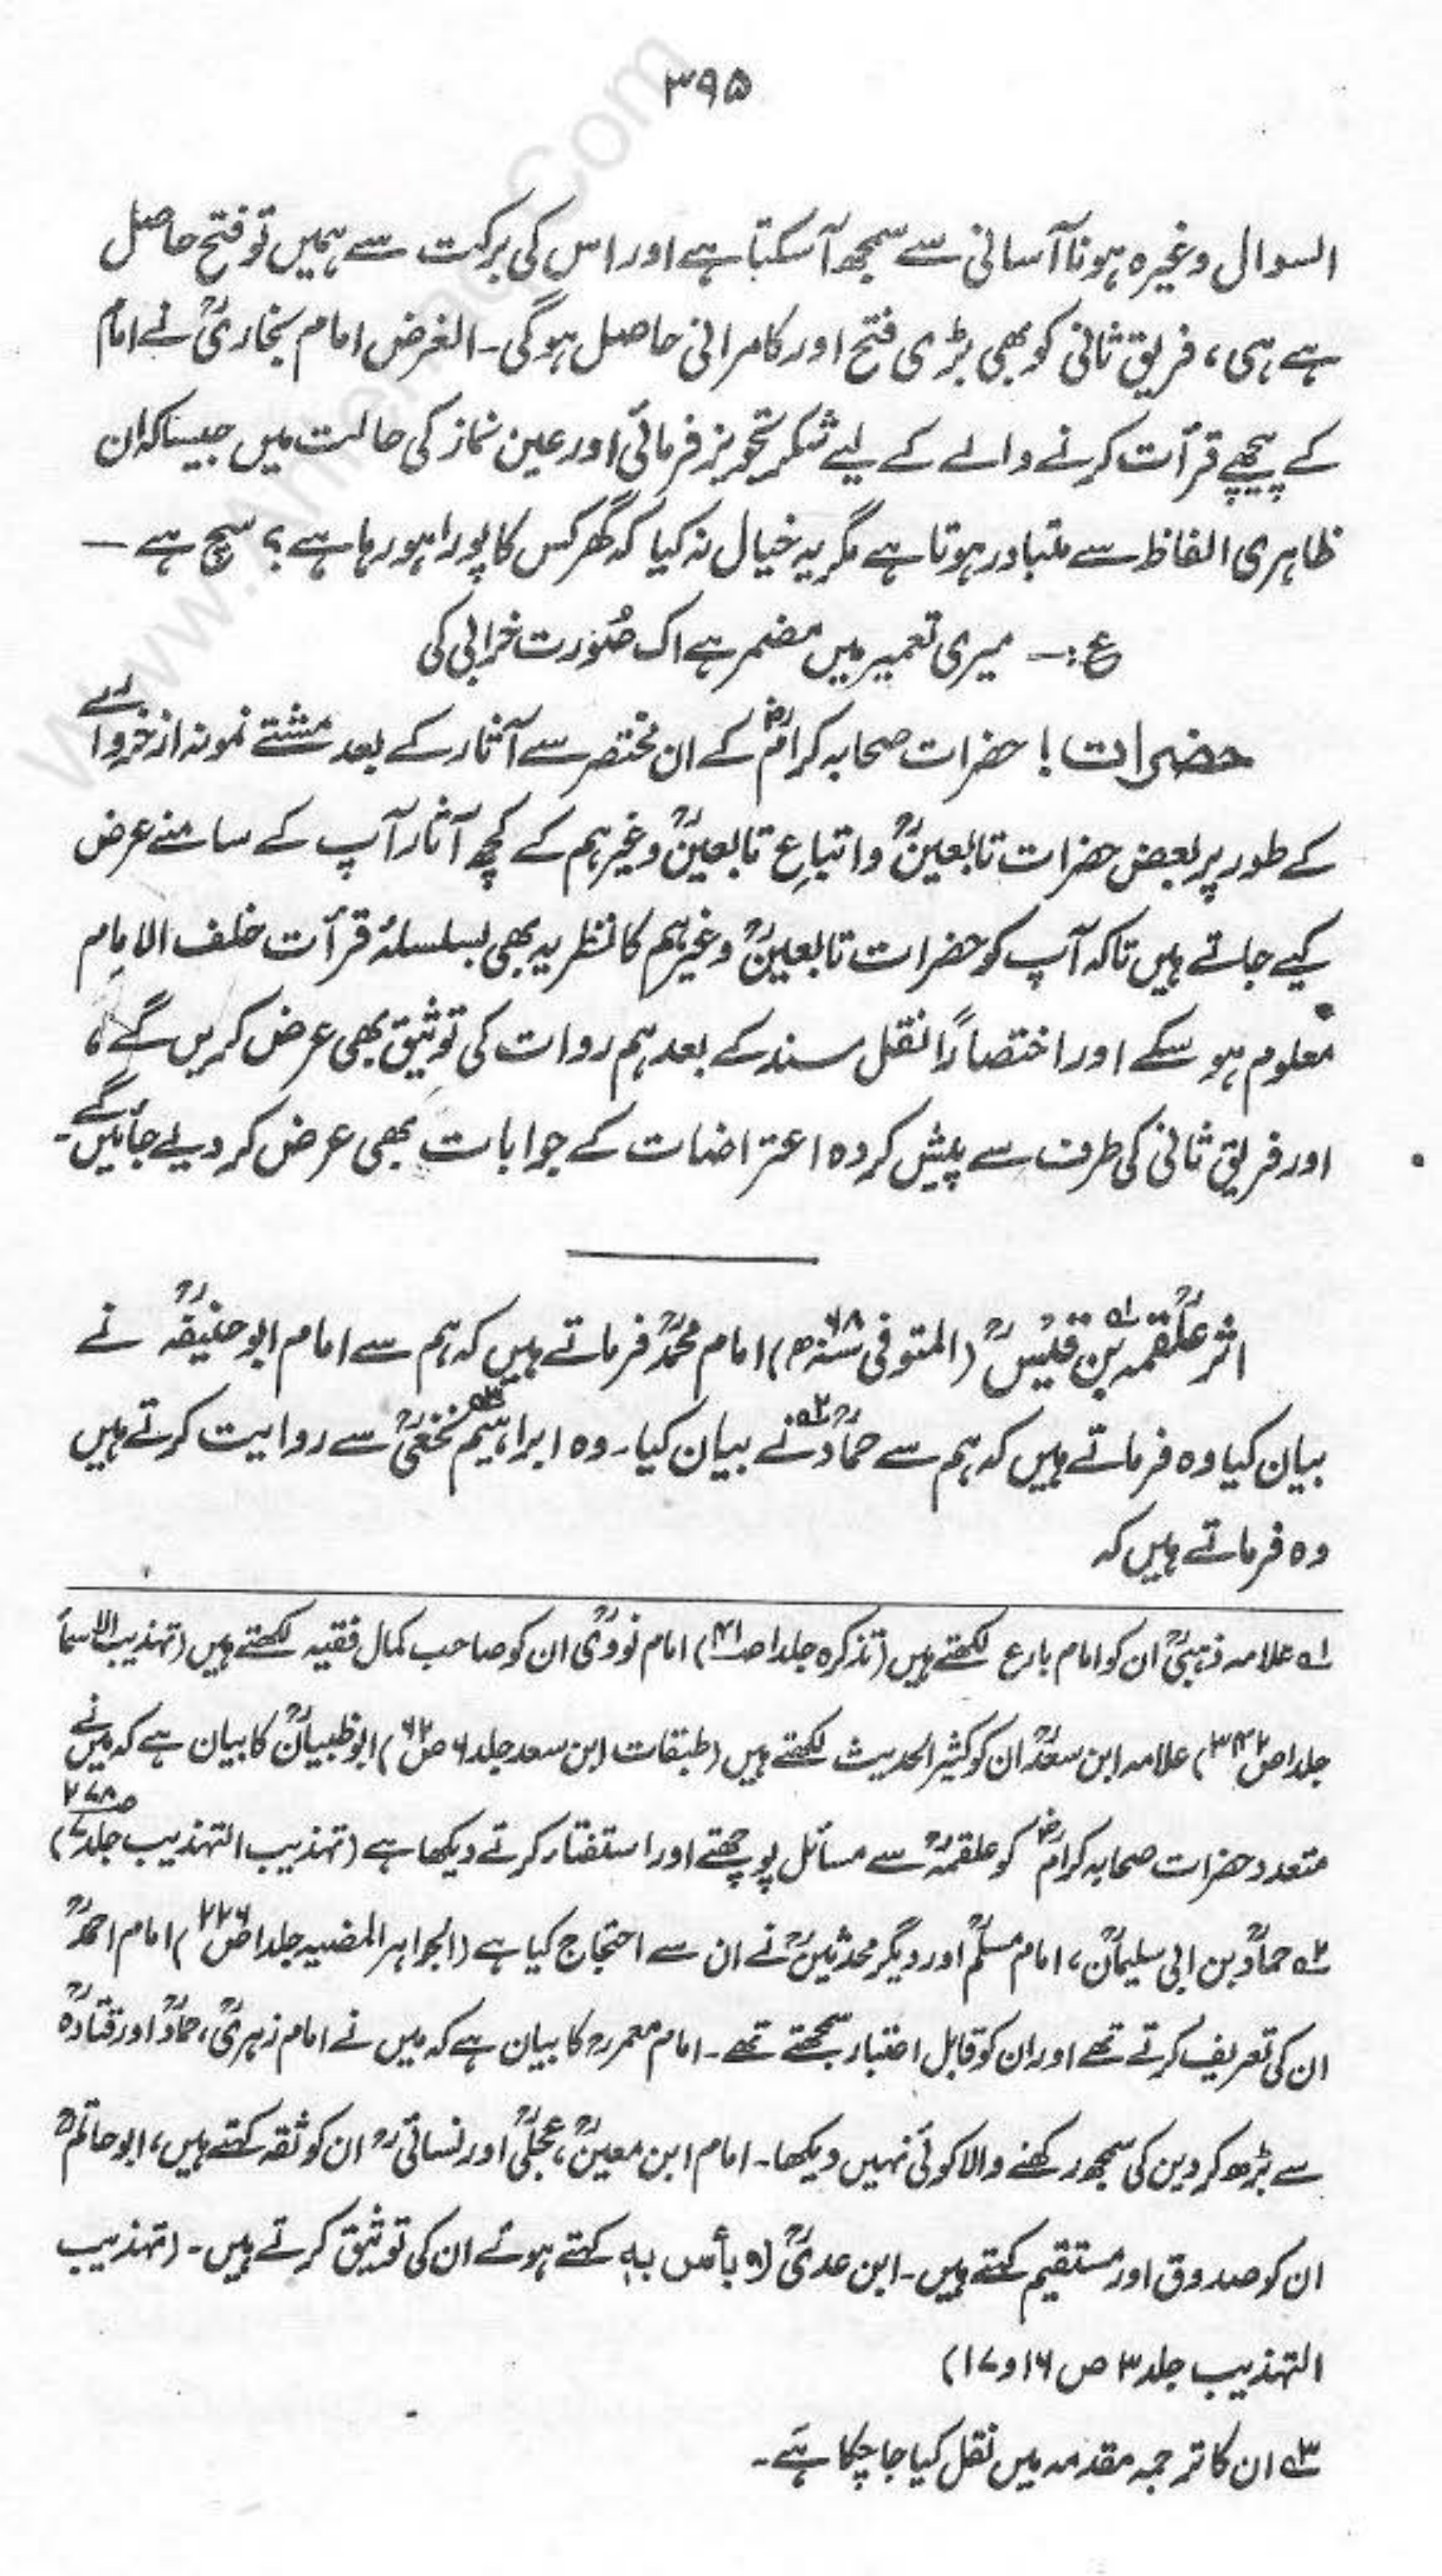 ۳۹۵
السوال وغیرہ ہونا آسانی سے سمجھ آ سکتا ہے اور اس کی برکت سے ہمیں تو فتح حاصل
ہے ہی، فریق ثانی کو بھی بڑی فتح اور کامرانی حاصل ہوگی۔ الغرض امام بخاریؒ نے امام
کے پیچھے قرأت کرنے والے کے لیے شکر تجویز فرمائی اور عین نماز کی حالت میں جیسا کہ ان
ظاہری الفاظ سے متبادر ہوتا ہے مگر یہ خیال نہ کیا کہ گھر کس کا پورا ہو رہا ہے؟ سچ ہے —
ع:— میری تعمیر میں مضمر ہے اک صُورت خرابی کی
حضرات! حضرات صحابہ کرامؓ کے ان مختصر سے آثار کے بعد مشتے نمونہ از خروارے
کے طور پر بعض حضرات تابعینؒ و اتباعِ تابعینؒ وغیرہم کے کچھ آثار آپ کے سامنے عرض
کیے جاتے ہیں تاکہ آپ کو حضرات تابعینؒ وغیرہم کا نظریہ بھی بسلسلۂ قرأت خلف الامام
معلوم ہو سکے اور اختصاراً نقل سند کے بعد ہم روات کی توثیق بھی عرض کریں گے،
اور فریق ثانی کی طرف سے پیش کردہ اعتراضات کے جوابات بھی عرض کر دیے جائیں گے۔
اثر علقمہؒ بن قیسؒ (المتوفی ۶۸ھ) امام محمدؒ فرماتے ہیں کہ ہم سے امام ابو حنیفہؒ نے
بیان کیا وہ فرماتے ہیں کہ ہم سے حمادؒ نے بیان کیا۔ وہ ابراہیم نخعیؒ سے روایت کرتے ہیں
وہ فرماتے ہیں کہ
۱ علامہ ذہبیؒ ان کو امام بارع لکھتے ہیں (تذکرہ جلد ۱ ص ۴۱) امام نوویؒ ان کو صاحب کمال فقیہ لکھتے ہیں (تہذیب الاسماء
جلد ۱ ص ۳۴۲) علامہ ابن سعدؒ ان کو کثیر الحدیث لکھتے ہیں (طبقات ابن سعد جلد ۶ ص ۶۲) ابو ظبیانؒ کا بیان ہے کہ میں نے
متعدد حضرات صحابہ کرامؓ کو علقمہؒ سے مسائل پوچھتے اور استفتار کرتے دیکھا ہے (تہذیب التہذیب جلد ۷ ص ۲۷۸)
۲ حمادؒ بن ابی سلیمانؒ، امام مسلمؒ اور دیگر محدثینؒ نے ان سے احتجاج کیا ہے (الجواہر المضیہ جلد ۱ ص ۲۲۶) امام احمدؒ
ان کی تعریف کرتے تھے اور ان کو قابل اعتبار سمجھتے تھے۔ امام معمرؒ کا بیان ہے کہ میں نے امام زہریؒ، حمادؒ اور قتادہؒ
سے بڑھ کر دین کی سمجھ رکھنے والا کوئی نہیں دیکھا۔ امام ابن معینؒ، عجلیؒ اور نسائیؒ ان کو ثقہ کہتے ہیں، ابو حاتمؒ
ان کو صدوق اور مستقیم کہتے ہیں۔ ابن عدیؒ لا بأس بہٖ کہتے ہوئے ان کی توثیق کرتے ہیں۔ (تہذیب
التہذیب جلد ۳ ص ۱۶ و ۱۷)
۳ ان کا ترجمہ مقدمہ میں نقل کیا جا چکا ہے۔